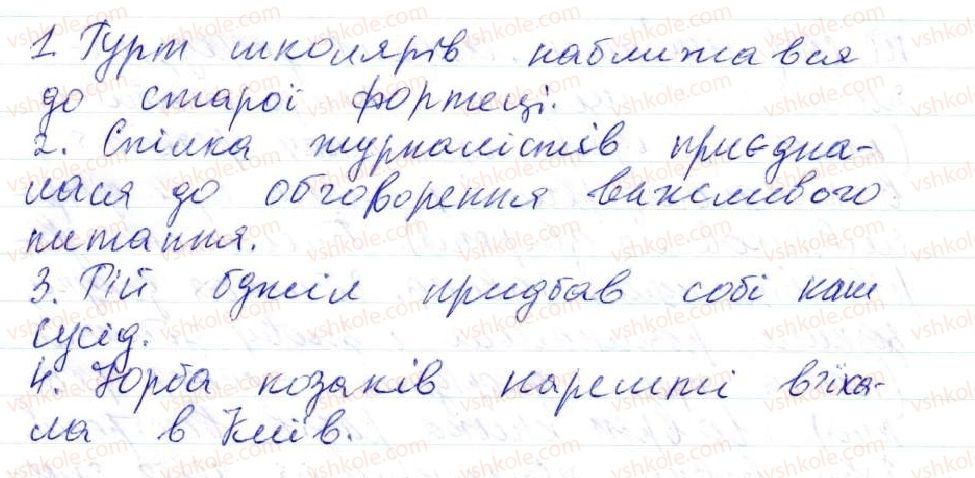 1. Гурт школярів наближався
до старої фортеці.
2. Спілка журналістів приєдна-
лася до обговорення важливого
питання.
3. Рій бджіл придбав собі наш
сусід.
4. Юрба козаків нарешті в'їха-
ла в Київ.